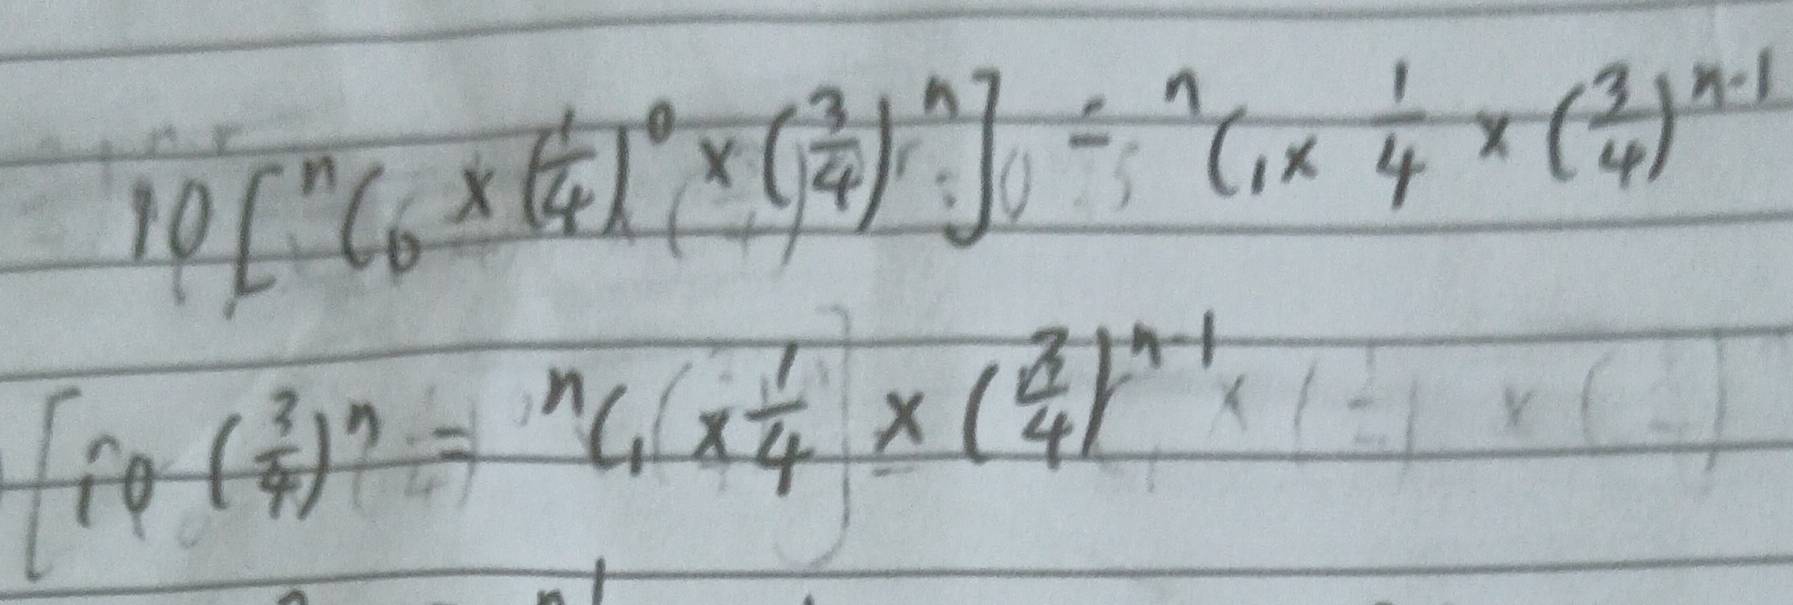 10[ⁿC₀ × (1/4)⁰ × (3/4)ⁿ] = ⁿC₁ × 1/4 × (3/4)ⁿ⁻¹
[10 (3/4)ⁿ = ⁿC₁ × 1/4 × (3/4)ⁿ⁻¹